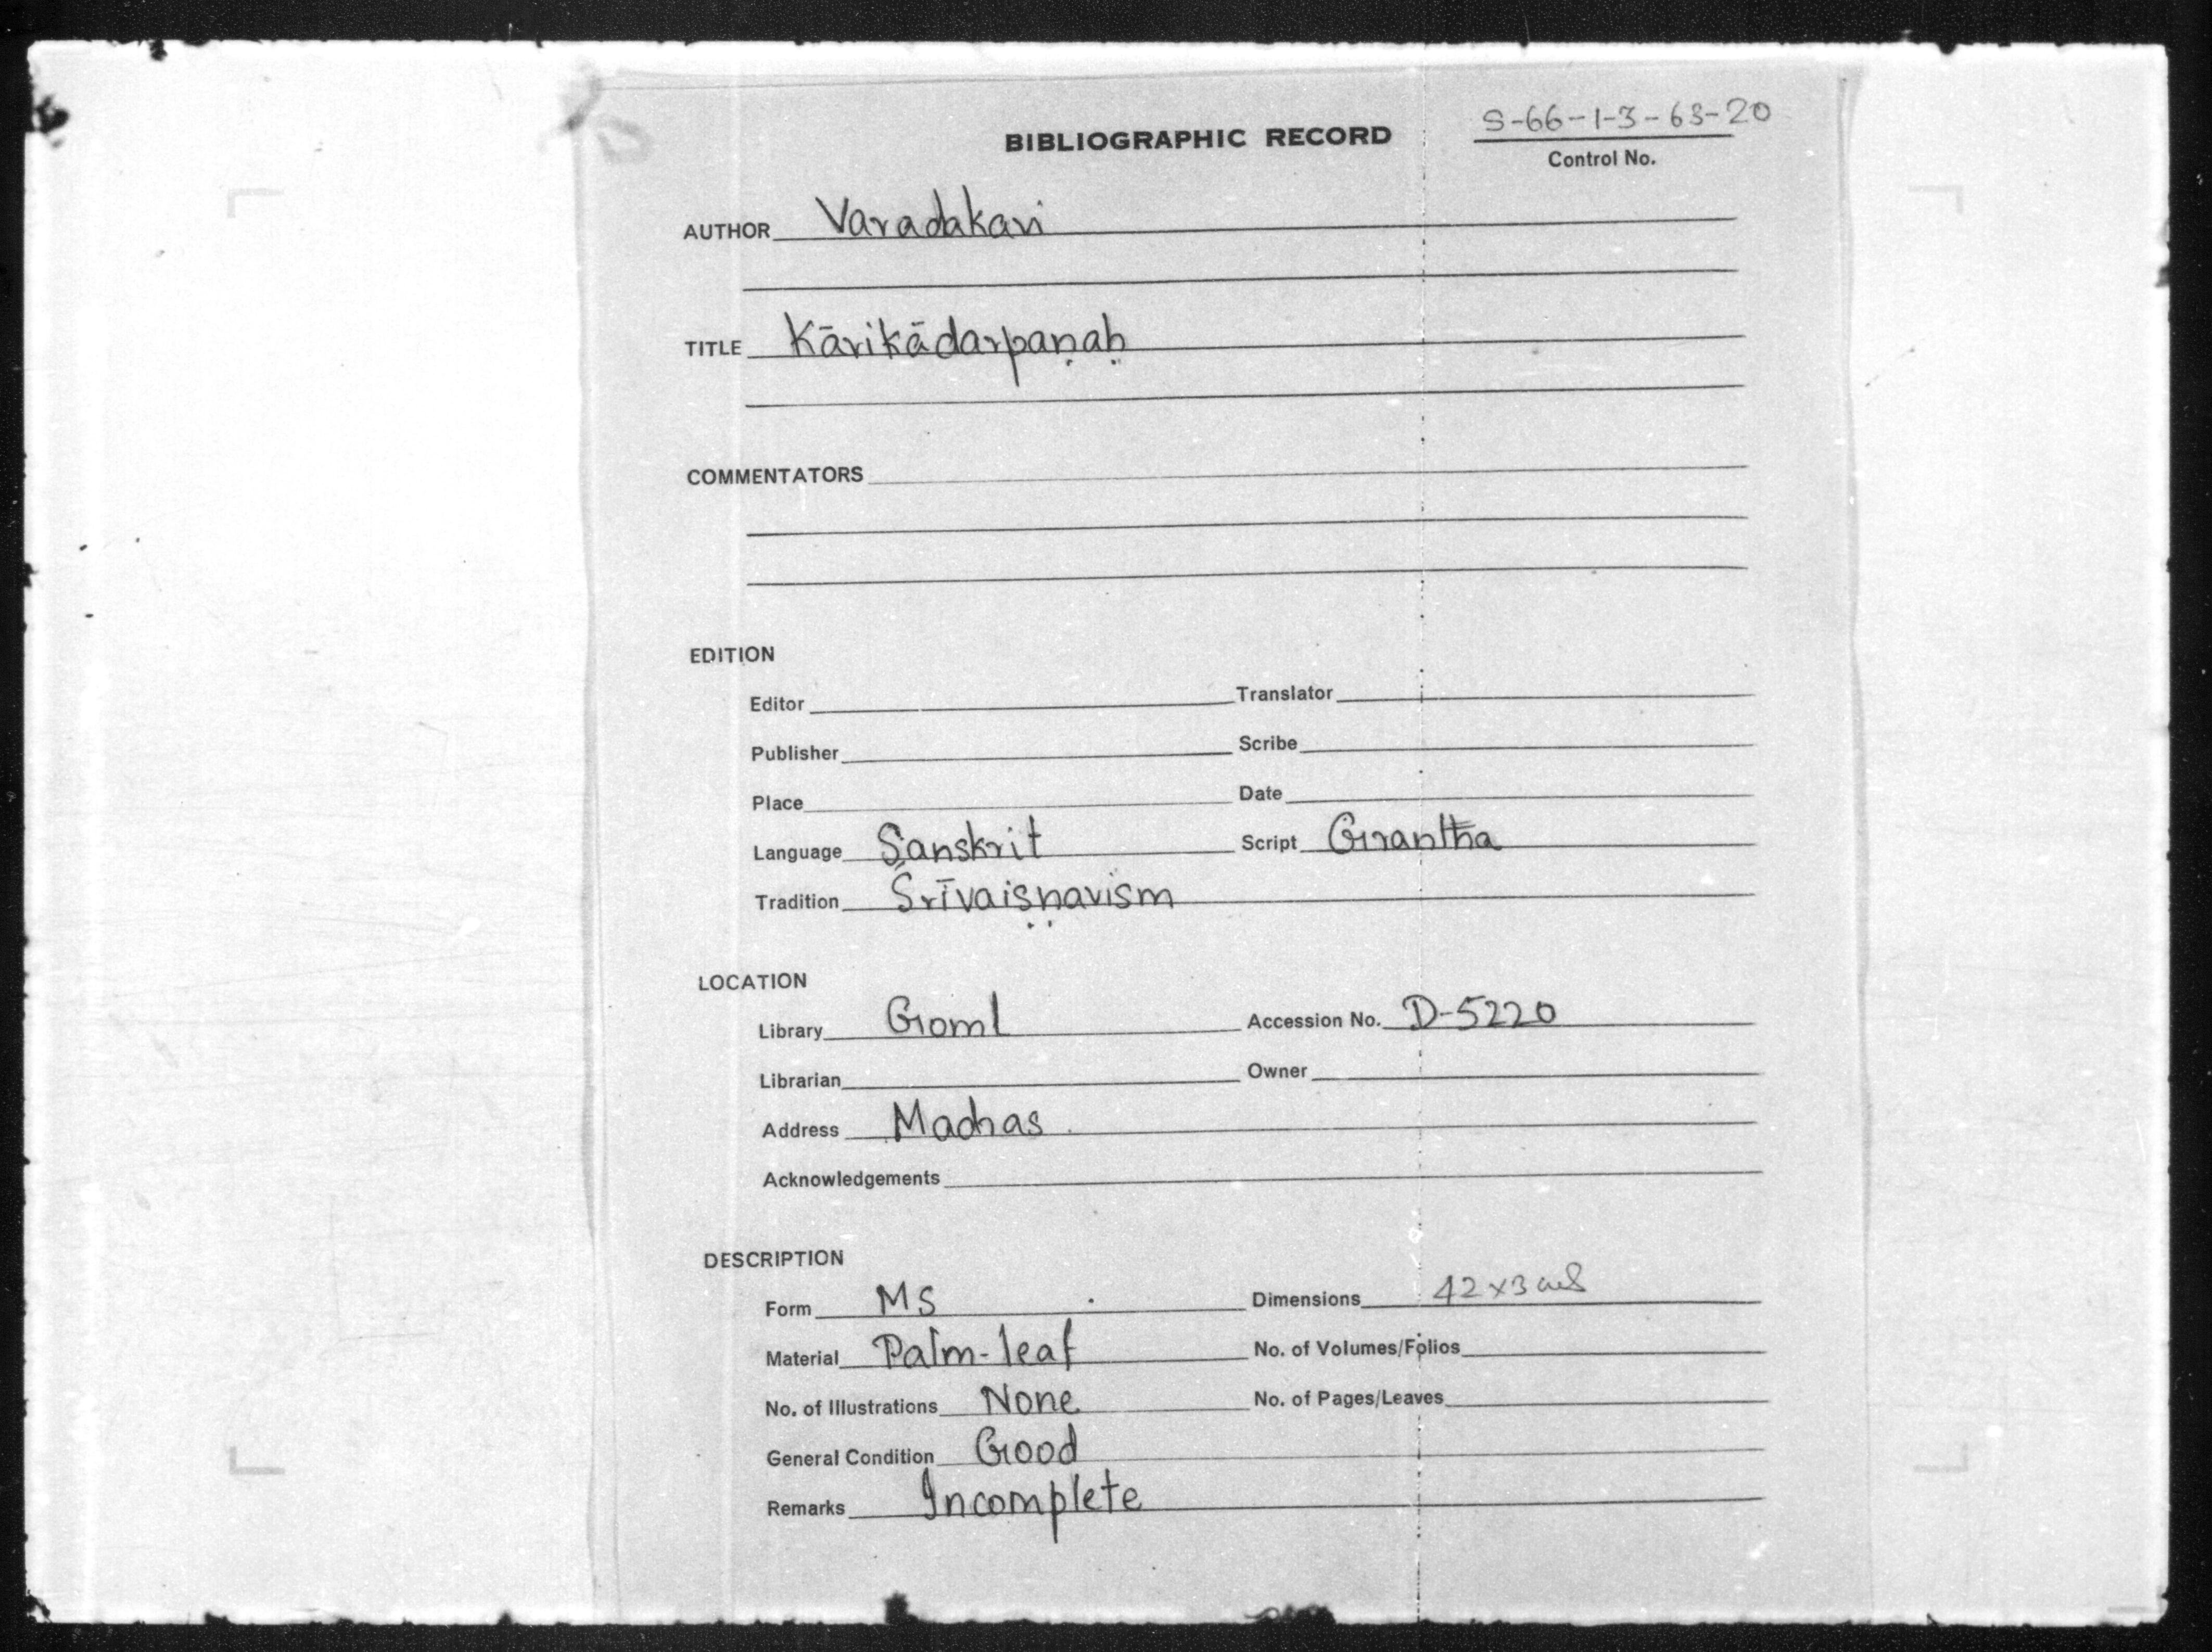 S-66-1-3-63-20
BIBLIOGRAPHIC RECORD
Control No.
AUTHOR Varadakavi
TITLE Kārikādarpaṇaḥ
COMMENTATORS
EDITION
Editor Translator
Publisher Scribe
Place Date
Language Sanskrit Script Grantha
Tradition Śrīvaiṣṇavism
LOCATION
Library Goml Accession No. D-5220
Librarian Owner
Address Madras
Acknowledgements
DESCRIPTION
Form MS Dimensions 42x3 cms
Material Palm-leaf No. of Volumes/Folios
No. of Illustrations None No. of Pages/Leaves
General Condition Good
Remarks Incomplete